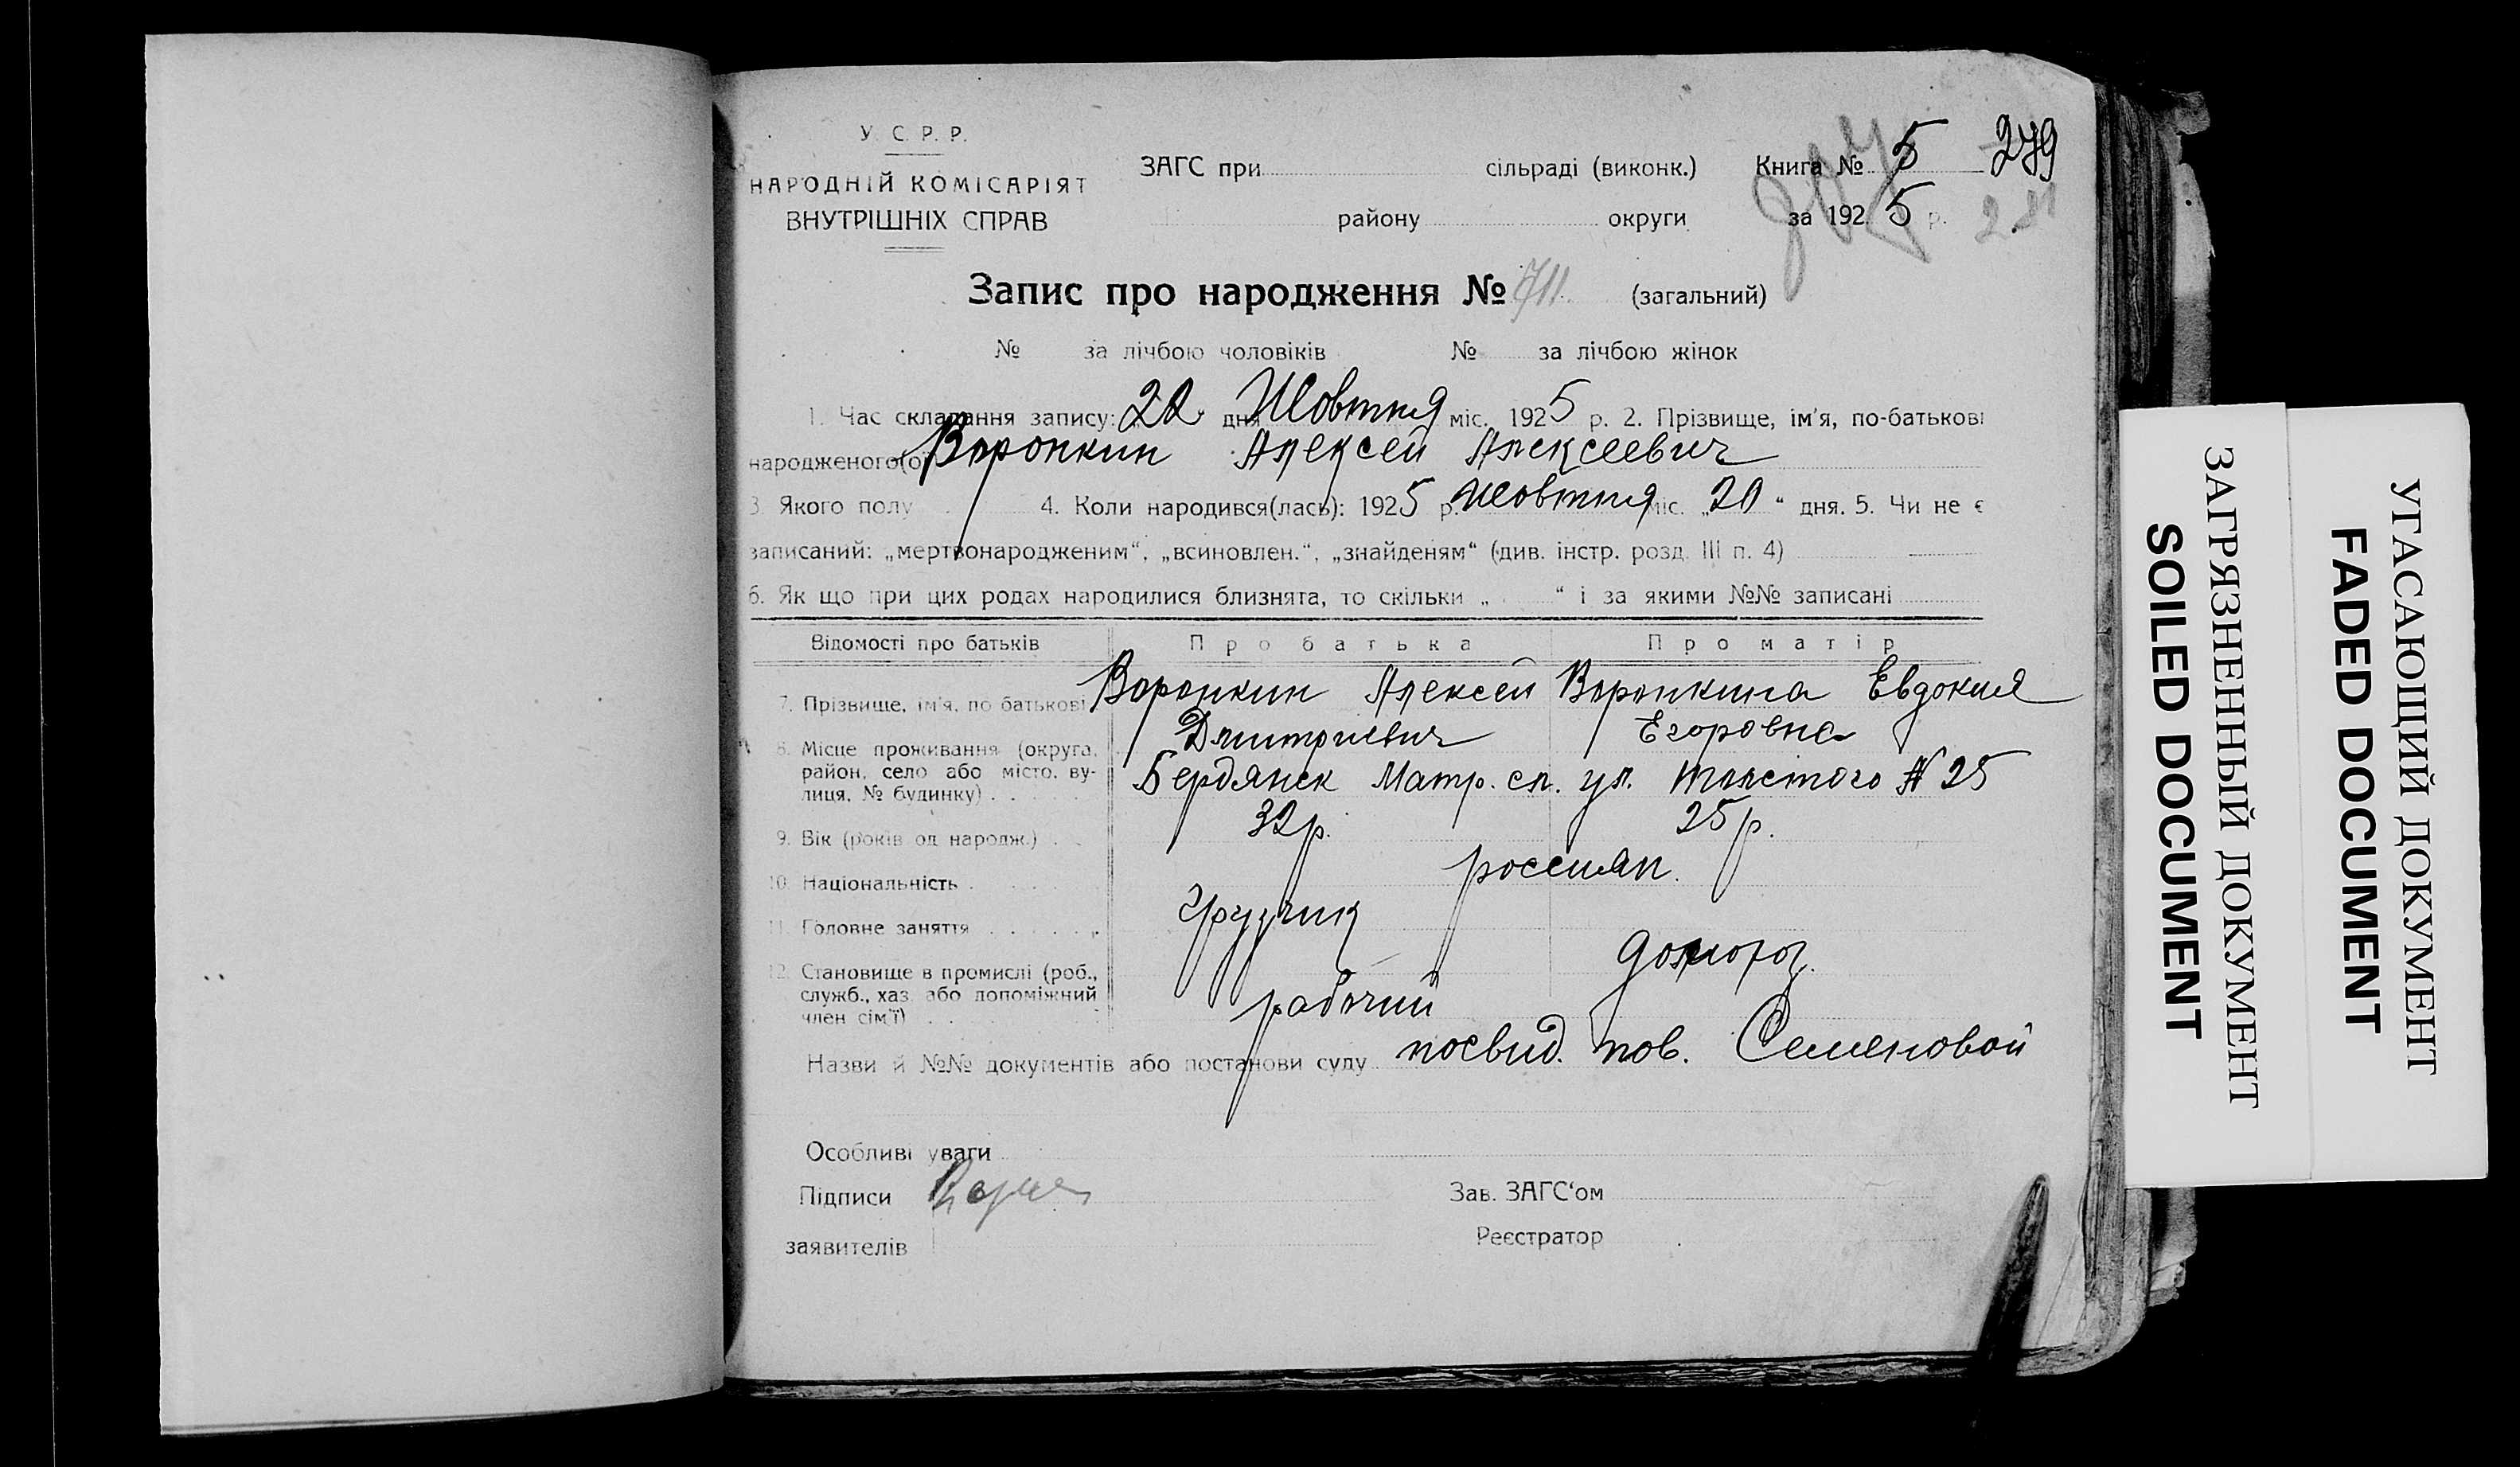 У. С. Р. Р.
НАРОДНІЙ КОМІСАРІЯТ
ВНУТРІШНІХ СПРАВ
ЗАГС при сільраді (виконк.) Книга № 5 279
району округи за 1925 р. 281
Запис про народження № 711 (загальний)
№ за лічбою чоловіків № за лічбою жінок
1. Час складання запису: „22“ дня Жовтня міс. 1925 р. 2. Прізвище, ім'я, по-батькові
народженого(ої) Воронкин Алексей Алексеевич
3. Якого полу 4. Коли народився(лась): 1925 р. жовтня міс. „20“ дня. 5. Чи не є
записаний: „мертвонародженим“, „всиновлен.“, „знайденям“ (див. інстр. розд. III п. 4)
6. Як що при цих родах народилися близнята, то скільки „ “ і за якими №№ записані
Відомості про батьків Про батька Про матір
7. Прізвище, ім'я, по батькові Воронкин Алексей Воронкина Евдокия
Дмитриевич Егоровна
8. Місце проживання (округа,
район, село або місто, ву-
лиця, № будинку) . . . . . Бердянск Матр. сл. ул. Толстого № 25
9. Вік (років од народж.) . . 32 р. 25 р.
10. Національність . . . . . . россиян.
11. Головне заняття . . . . . . Грузчик
12. Становище в промислі (роб.,
служб., хаз. або допоміжний
член сім'ї) . . рабочий
Назви й №№ документів або постанови суду посвид. пов. Семеновой
Особливі уваги
Підписи Зав. ЗАГС'ом
заявителів Реєстратор
ЗАГРЯЗНЕННЫЙ ДОКУМЕНТ
SOILED DOCUMENT
УГАСАЮЩИЙ ДОКУМЕНТ
FADED DOCUMENT